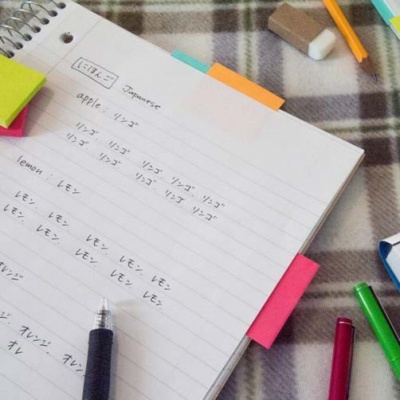 にほんご Japanese
apple : リンゴ
リンゴ リンゴ リンゴ リンゴ リンゴ
リンゴ リンゴ リンゴ リンゴ リンゴ
lemon : レモン
レモン レモン レモン レモン レモン
レモン レモン レモン レモン レモン
レンジ
オレンジ、オレ
オレ